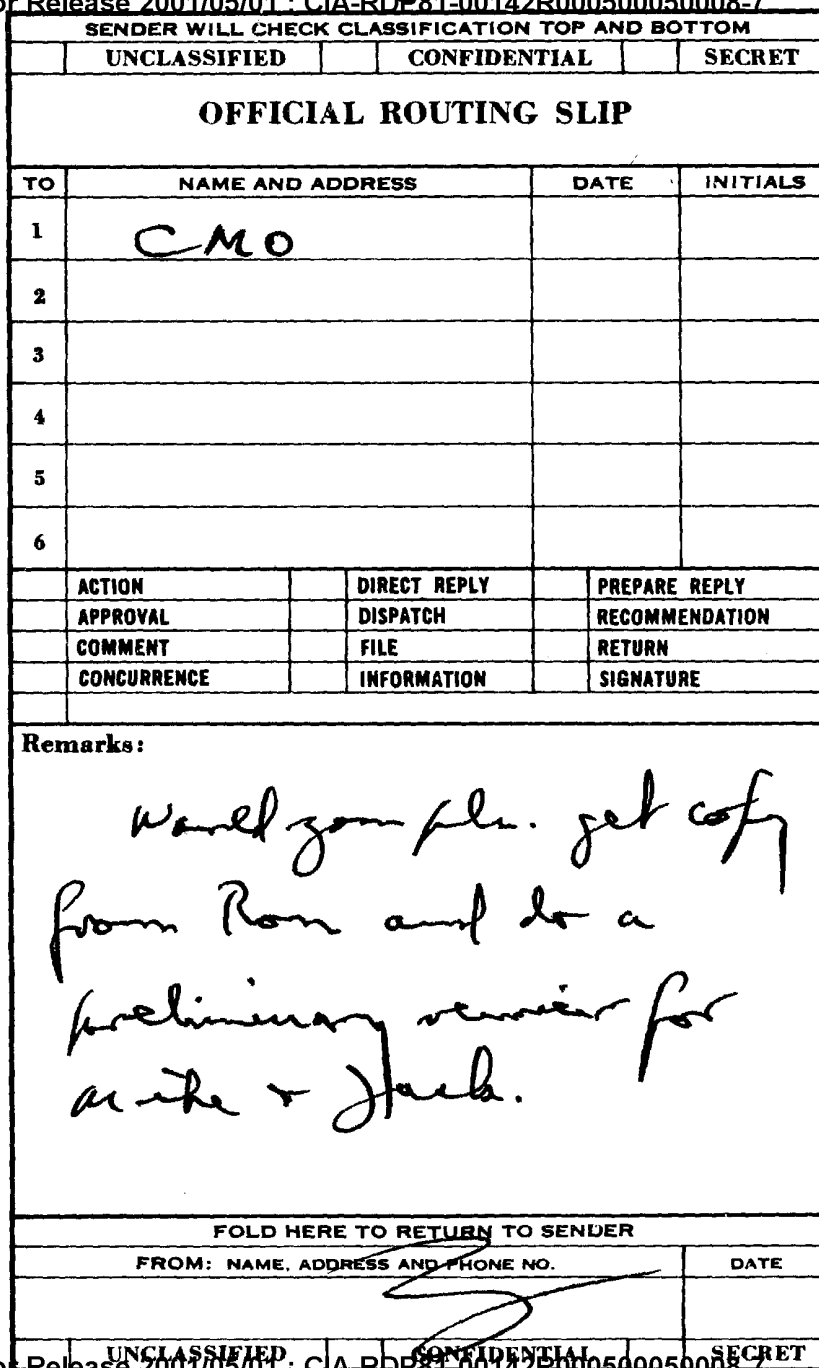 or Release 2001/05/01 : CIA-RDP81-00142R000500050008-7
SENDER WILL CHECK CLASSIFICATION TOP AND BOTTOM
UNCLASSIFIED CONFIDENTIAL SECRET
OFFICIAL ROUTING SLIP
TO NAME AND ADDRESS DATE INITIALS
1 CMO
2
3
4
5
6
ACTION DIRECT REPLY PREPARE REPLY
APPROVAL DISPATCH RECOMMENDATION
COMMENT FILE RETURN
CONCURRENCE INFORMATION SIGNATURE
Remarks:
Would you pls. get copy
from Ron and do a
preliminary review for
Mike + Jack.
FOLD HERE TO RETURN TO SENDER
FROM: NAME, ADDRESS AND PHONE NO. DATE
UNCLASSIFIED CONFIDENTIAL SECRET
or Release 2001/05/01 : CIA-RDP81-00142R000500050008-7